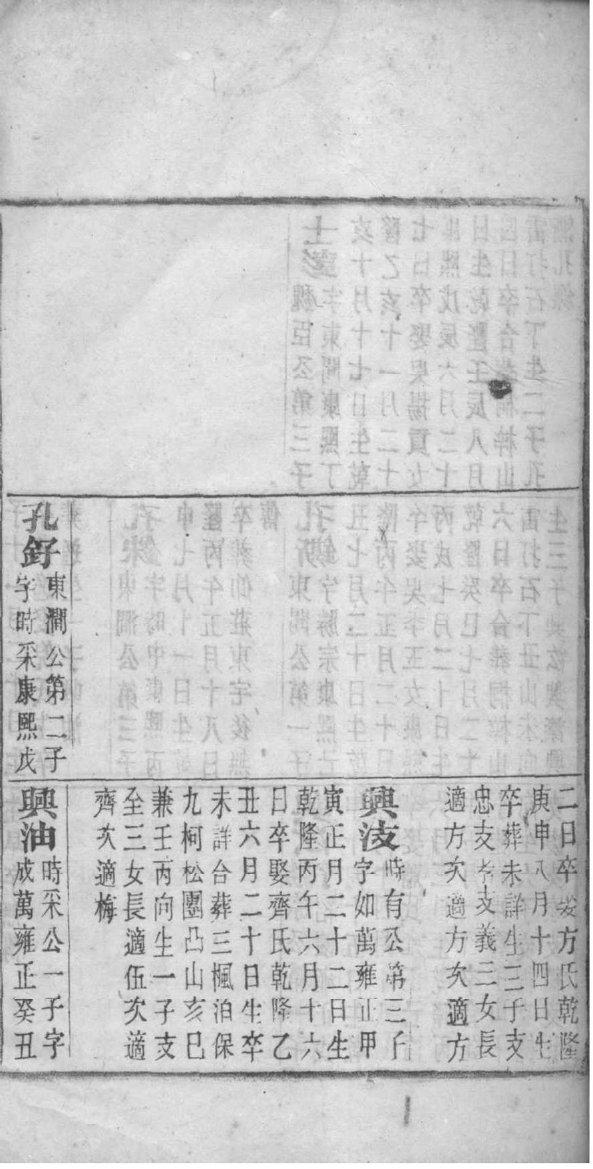 孔釨
東澗公第二子
字時采康熙戊
二日卒娶方氏乾隆
庚申八月十四日生
卒葬未詳生三子支
忠支
支義三女長
適方次適方次適方
興
時有公第三子
字如萬雍正甲
寅正月二十二日生
乾隆丙午六月十六
日卒娶齊氏乾隆乙
丑六月二十日生卒
未詳合葬三楓泊保
九柯松團凸山亥巳
兼壬丙向生一子支
至三女長適伍次適
齊次適梅
興油
時采公一子字
成萬雍正癸丑